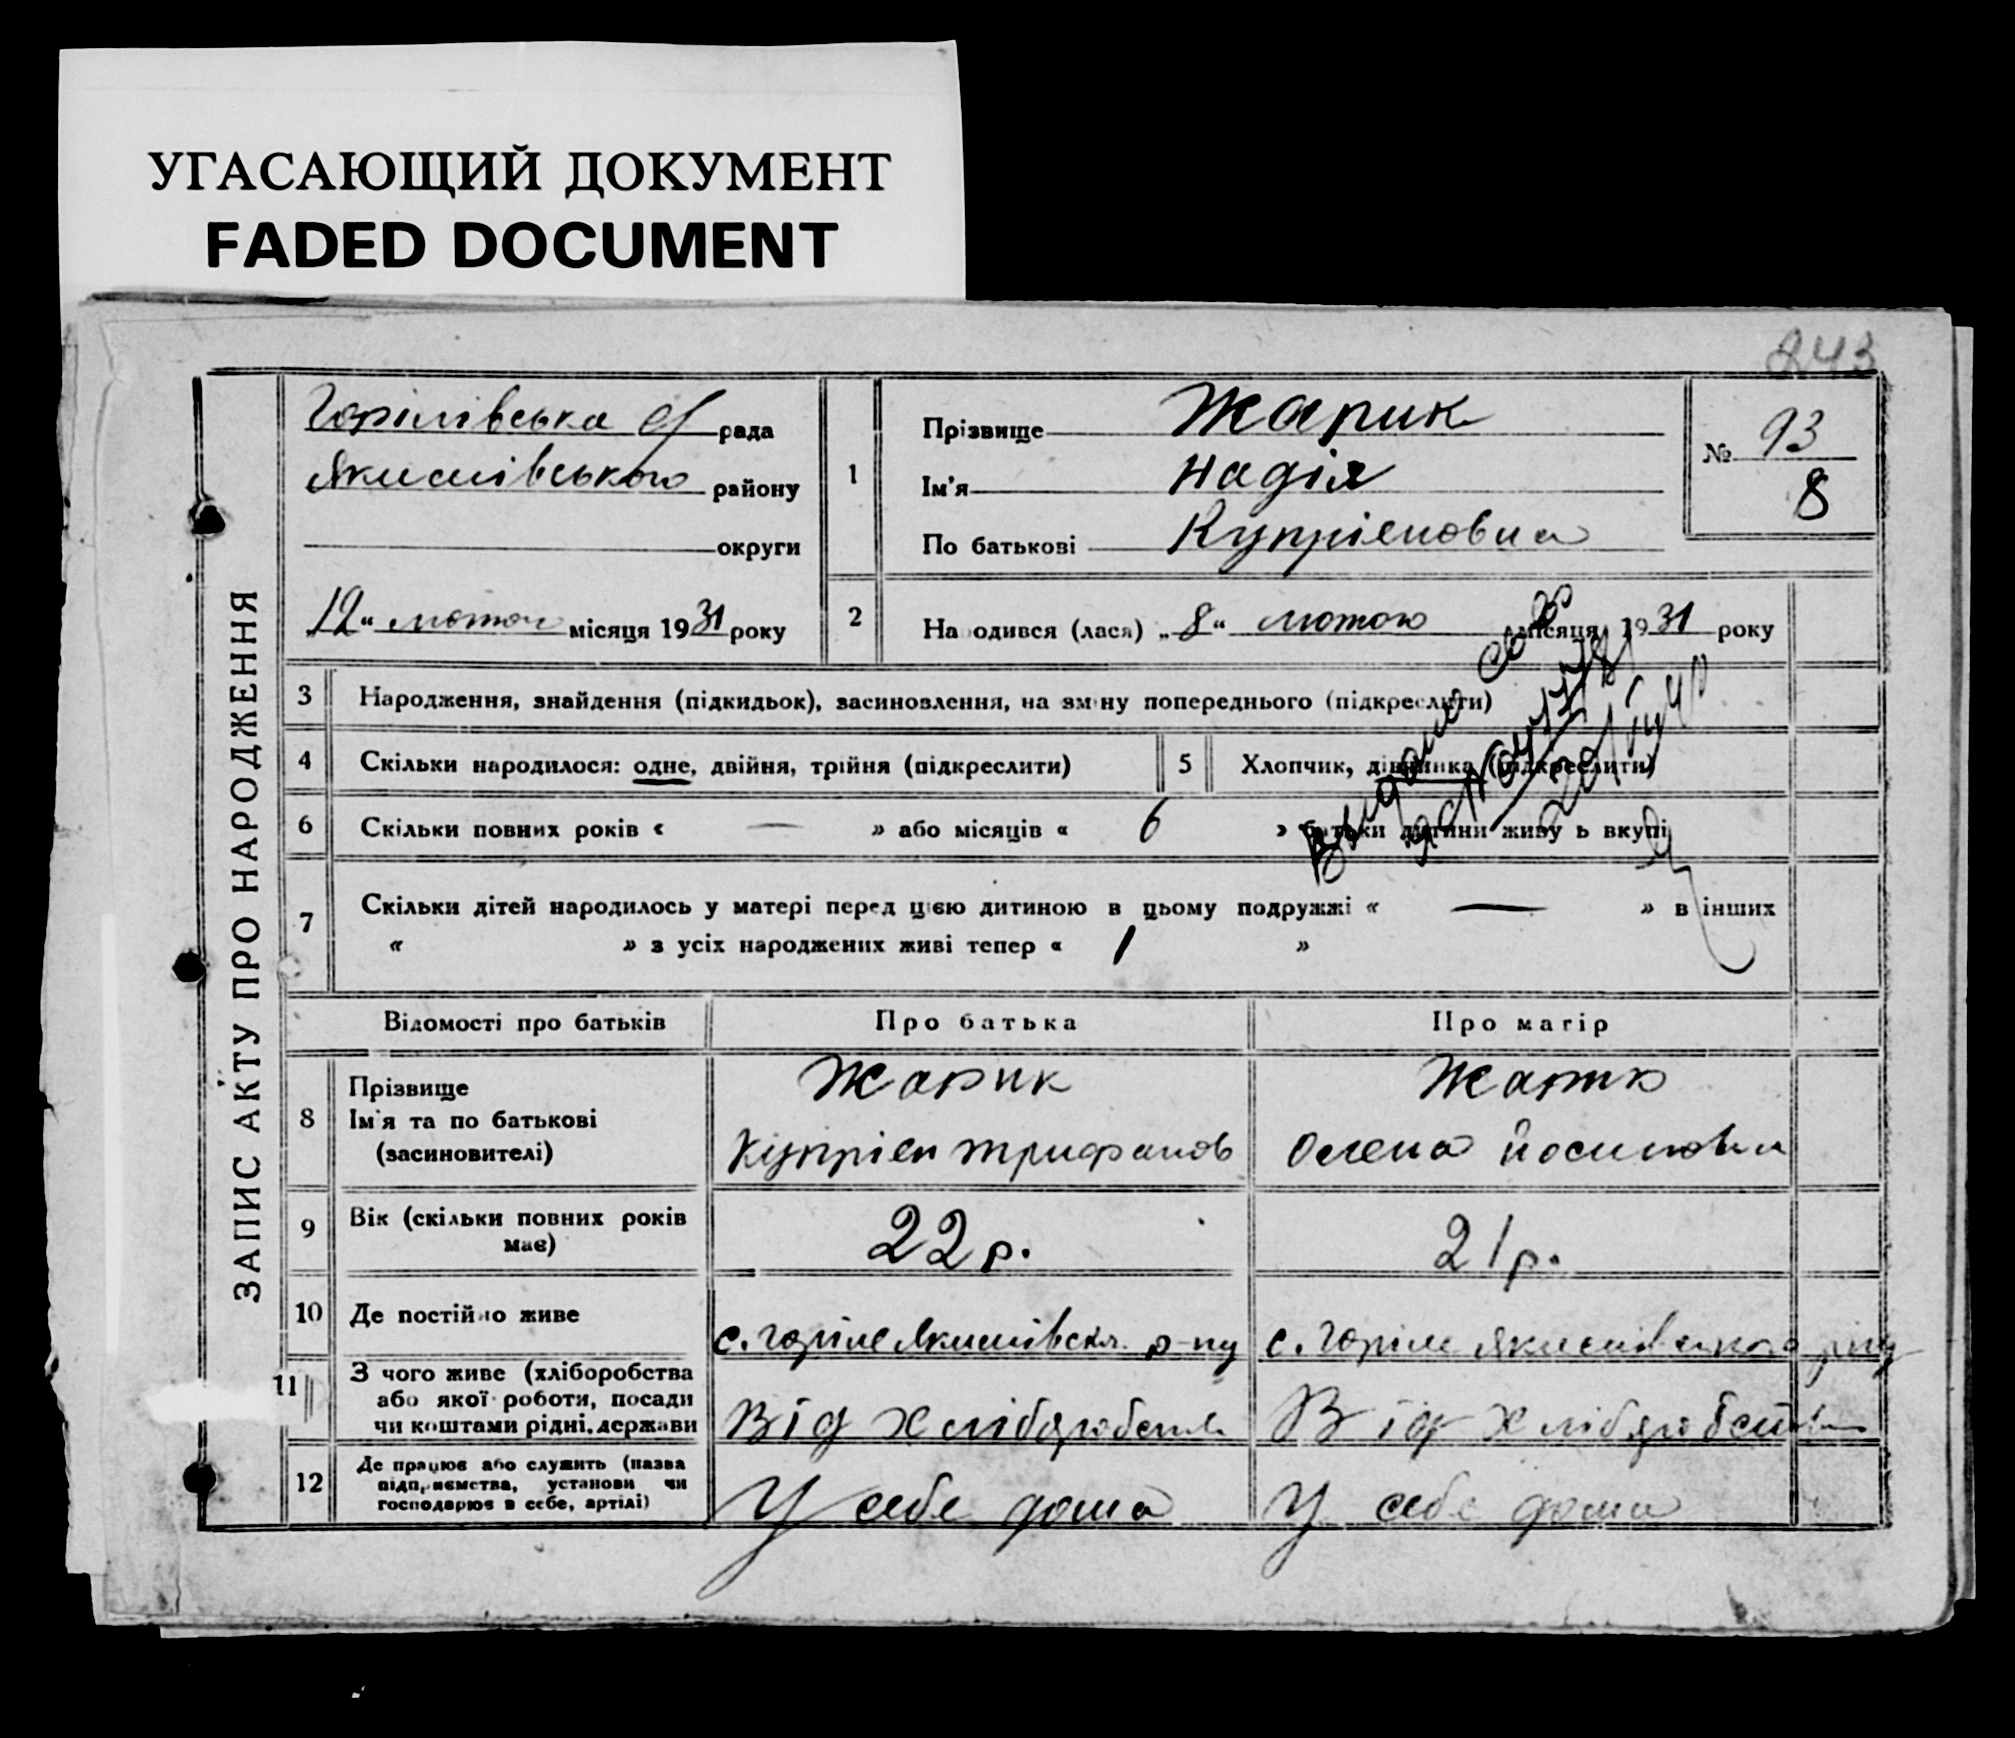 УГАСАЮЩИЙ ДОКУМЕНТ
FADED DOCUMENT
243
ЗАПИС АКТУ ПРО НАРОДЖЕННЯ
Горілівська с/ рада
Якимівського району
округи
„12“ лютого місяця 1931 року
1
Прізвище Жарик
Ім'я Надія
По батькові Купріеновна
№ 93
8
2 Народився (лася) „8“ лютого місяця 1931 року
Видано св во
3 Народження, знайдення (підкидьок), засиновлення, на зміну попереднього (підкреслити)
4 Скільки народилося: одне, двійня, трійня (підкреслити)
5 Хлопчик, дівчинка (підкреслити)
6 Скільки повних років « — » або місяців « 6 » батьки дитини живуть вкупі
7 Скільки дітей народилось у матері перед цією дитиною в цьому подружжі « — » в інших
« » з усіх народжених живі тепер « 1 »
Відомості про батьків Про батька Про матір
8 Прізвище
Ім'я та по батькові
(засиновителі)
Жарик
Купріен Трифанов
Жарик
Олена Йосиповна
9 Вік (скільки повних років
має)
22 р.
21 р.
10 Де постійно живе
с. Горіле Якимівськ. р-ну
с. Горіле Якимівського р-ну
11 З чого живе (хліборобства
або якої роботи, посади
чи коштами рідні, держави
Від Хліборобства
Від Хліборобства
12 Де працює або служить (назва
підприємства, установи чи
господарює в себе, артілі)
У себе дома
У себе дома